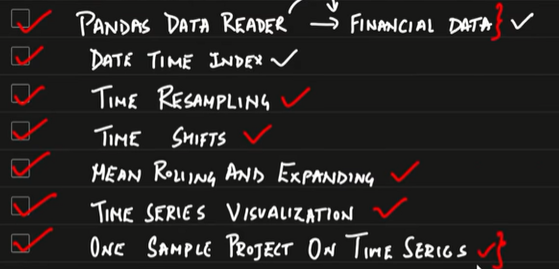 PANDAS DATA READER → FINANCIAL DATA
DATE TIME INDEX
TIME RESAMPLING
TIME SHIFTS
MEAN ROLLING AND EXPANDING
TIME SERIES VISUALIZATION
ONE SAMPLE PROJECT ON TIME SERIES